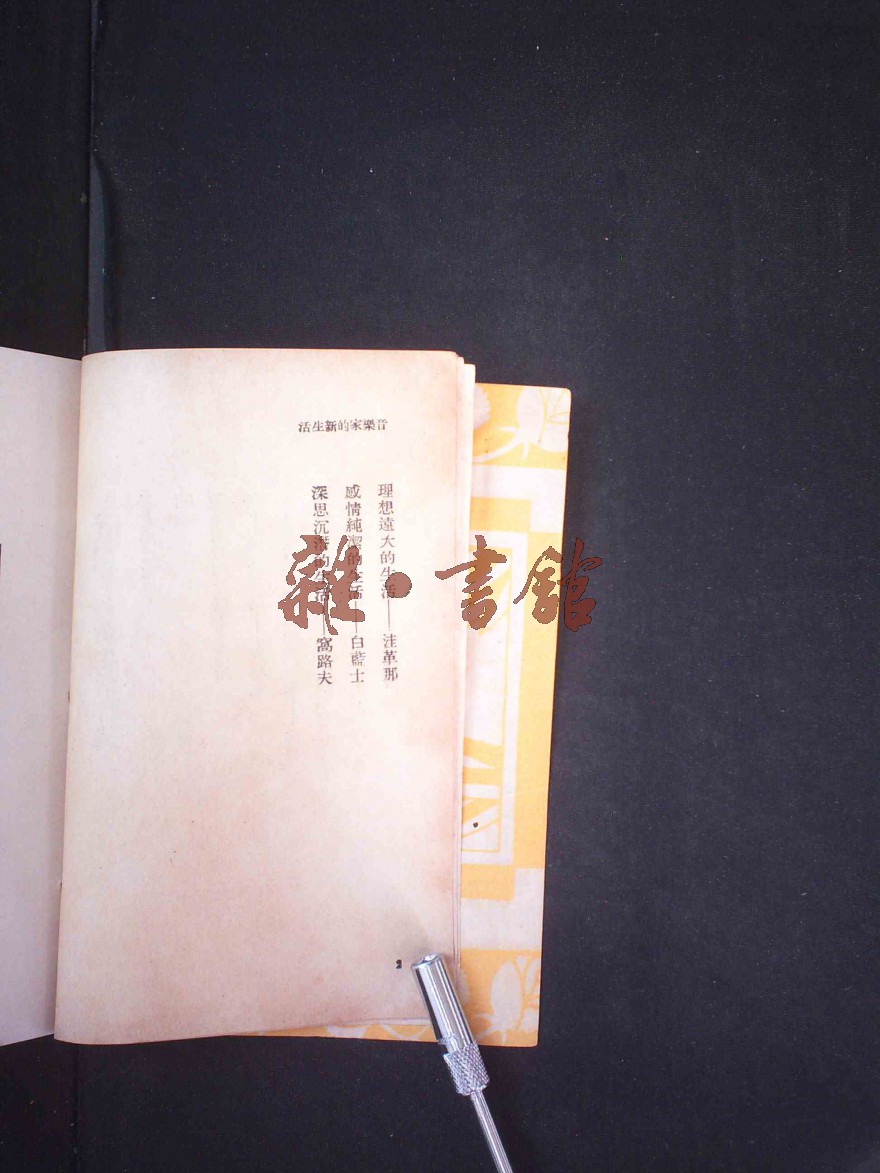 音樂家的新生活
理想遠大的生活——洼革那
感情純潔的生活——白藍士
深思沉潛的生活——窩路夫
2
雜·書館